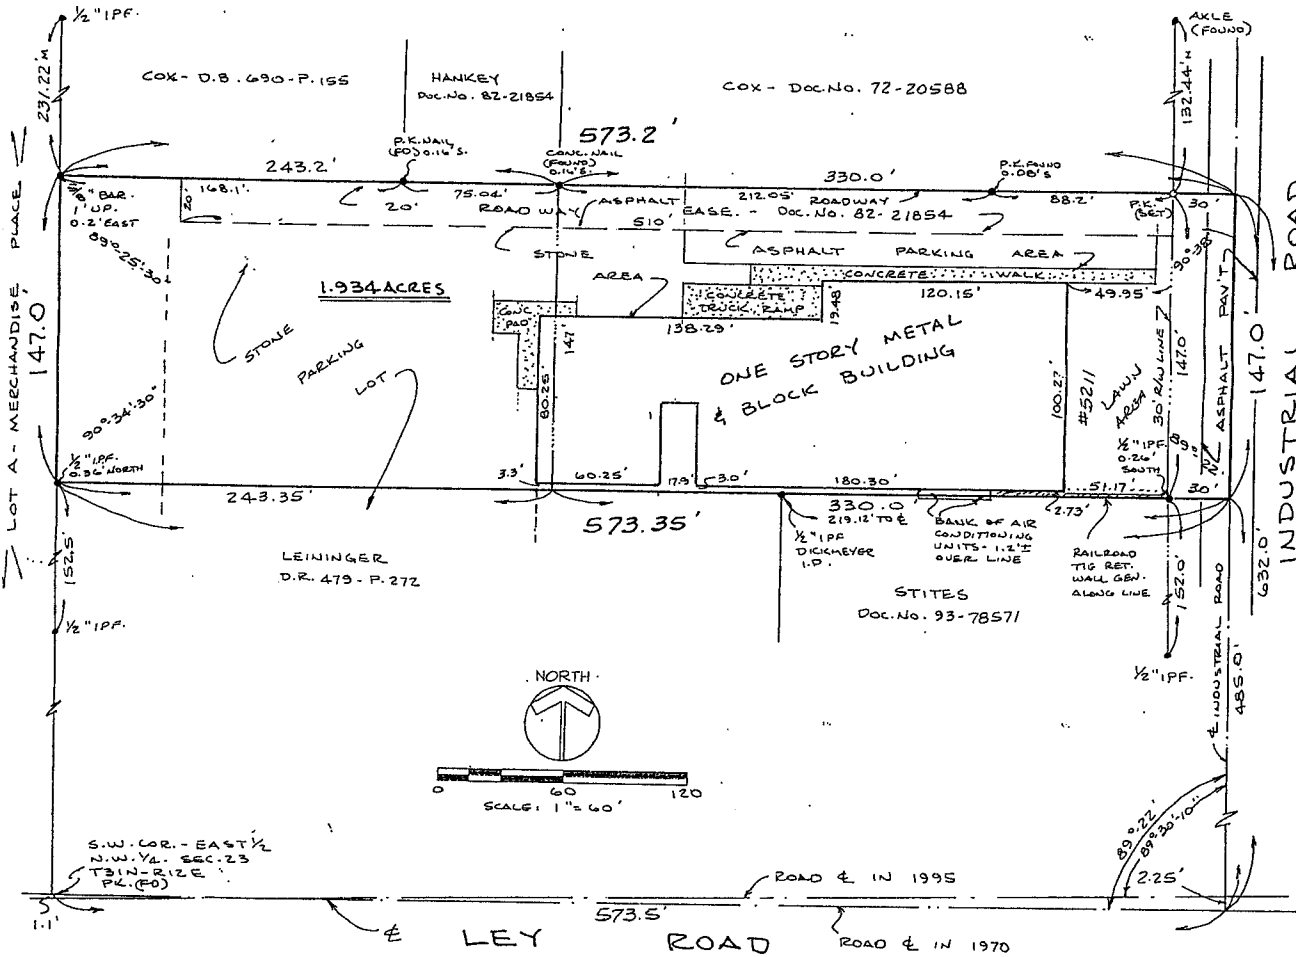 ½" IPF.
AXLE
(FOUND)
231.22'M
132.44'M
COX - D.B. 690 - P. 155
HANKEY
DOC. NO. 82-21854
COX - DOC. NO. 72-20588
573.2'
P.K. NAIL
(FD) 0.16'S.
CONC. NAIL
(FOUND)
0.16'S.
P.K. FOUND
0.08'S
243.2'
330.0'
168.1'
75.04'
212.05'
ROADWAY
88.2'
P.K.
(SET)
30'
20'
20'
ROADWAY
ASPHALT
510'
EASE. - DOC. NO. 82-21854
" BAR.
1' UP.
0.2' EAST
89°-25'-30"
90°-38'
STONE
AREA
ASPHALT PARKING AREA
CONCRETE WALK
1.934 ACRES
CONC.
PAD
CONCRETE
TRUCK RAMP
120.15'
49.95'
138.29'
19.48'
147'
STONE
PARKING
LOT
ONE STORY METAL
& BLOCK BUILDING
80.25'
100.27'
#5211
LAWN
AREA
30' R/W LINE
147.0'
ASPHALT PAV'T
147.0'
147.0'
LOT A - MERCHANDISE PLACE
INDUSTRIAL ROAD
90°-34'-30"
½" I.P.F.
0.36' NORTH
½" IPF.
0.26'
SOUTH
3.3'
60.25'
17.9'
3.0'
180.30'
51.17'
30'
243.35'
573.35'
330.0'
219.12' TO ℄
2.73'
½" IPF
DICKMEYER
I.P.
BANK OF AIR
CONDITIONING
UNITS - 1.2'±
OVER LINE
RAILROAD
TIG RET.
WALL GEN.
ALONG LINE
LEININGER
D.R. 479 - P. 272
STITES
DOC. NO. 93-78571
152.5'
152.0'
632.0'
½" IPF.
½" IPF.
℄ INDUSTRIAL ROAD
485.0'
NORTH
0 60 120
SCALE: 1" = 60'
89°-22'
89°-30'-10"
2.25'
S.W. COR. - EAST ½
N.W. ¼. SEC. 23
T31N - R12E
PK. (FD)
1.1'
ROAD ℄ IN 1995
573.5'
℄
LEY ROAD
ROAD ℄ IN 1970